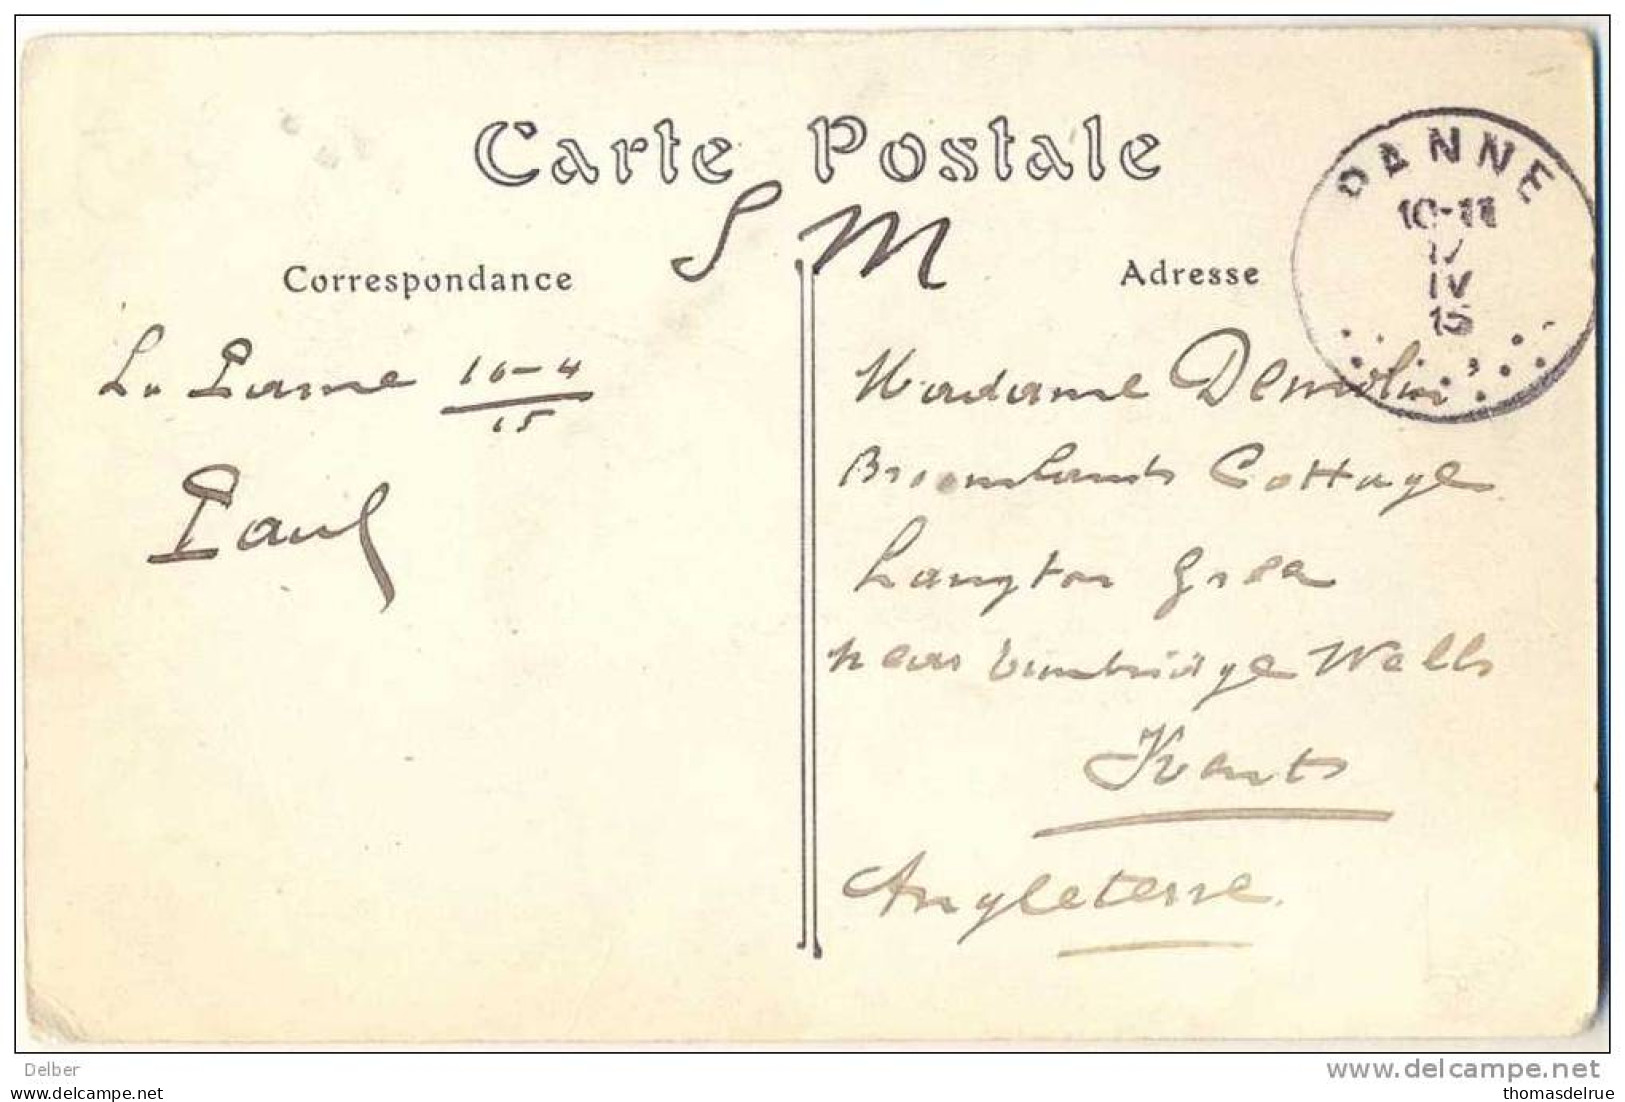 Carte Postale
S M
Correspondance
Adresse
PANNE
10-11
IV
15
La Panne 10-4
15
Paul
Madame Demolin
Broomlands Cottage
Langton Green
near Tunbridge Wells
Kent
Angleterre
Delber
delcampe.net
n_931
thomasdelrue